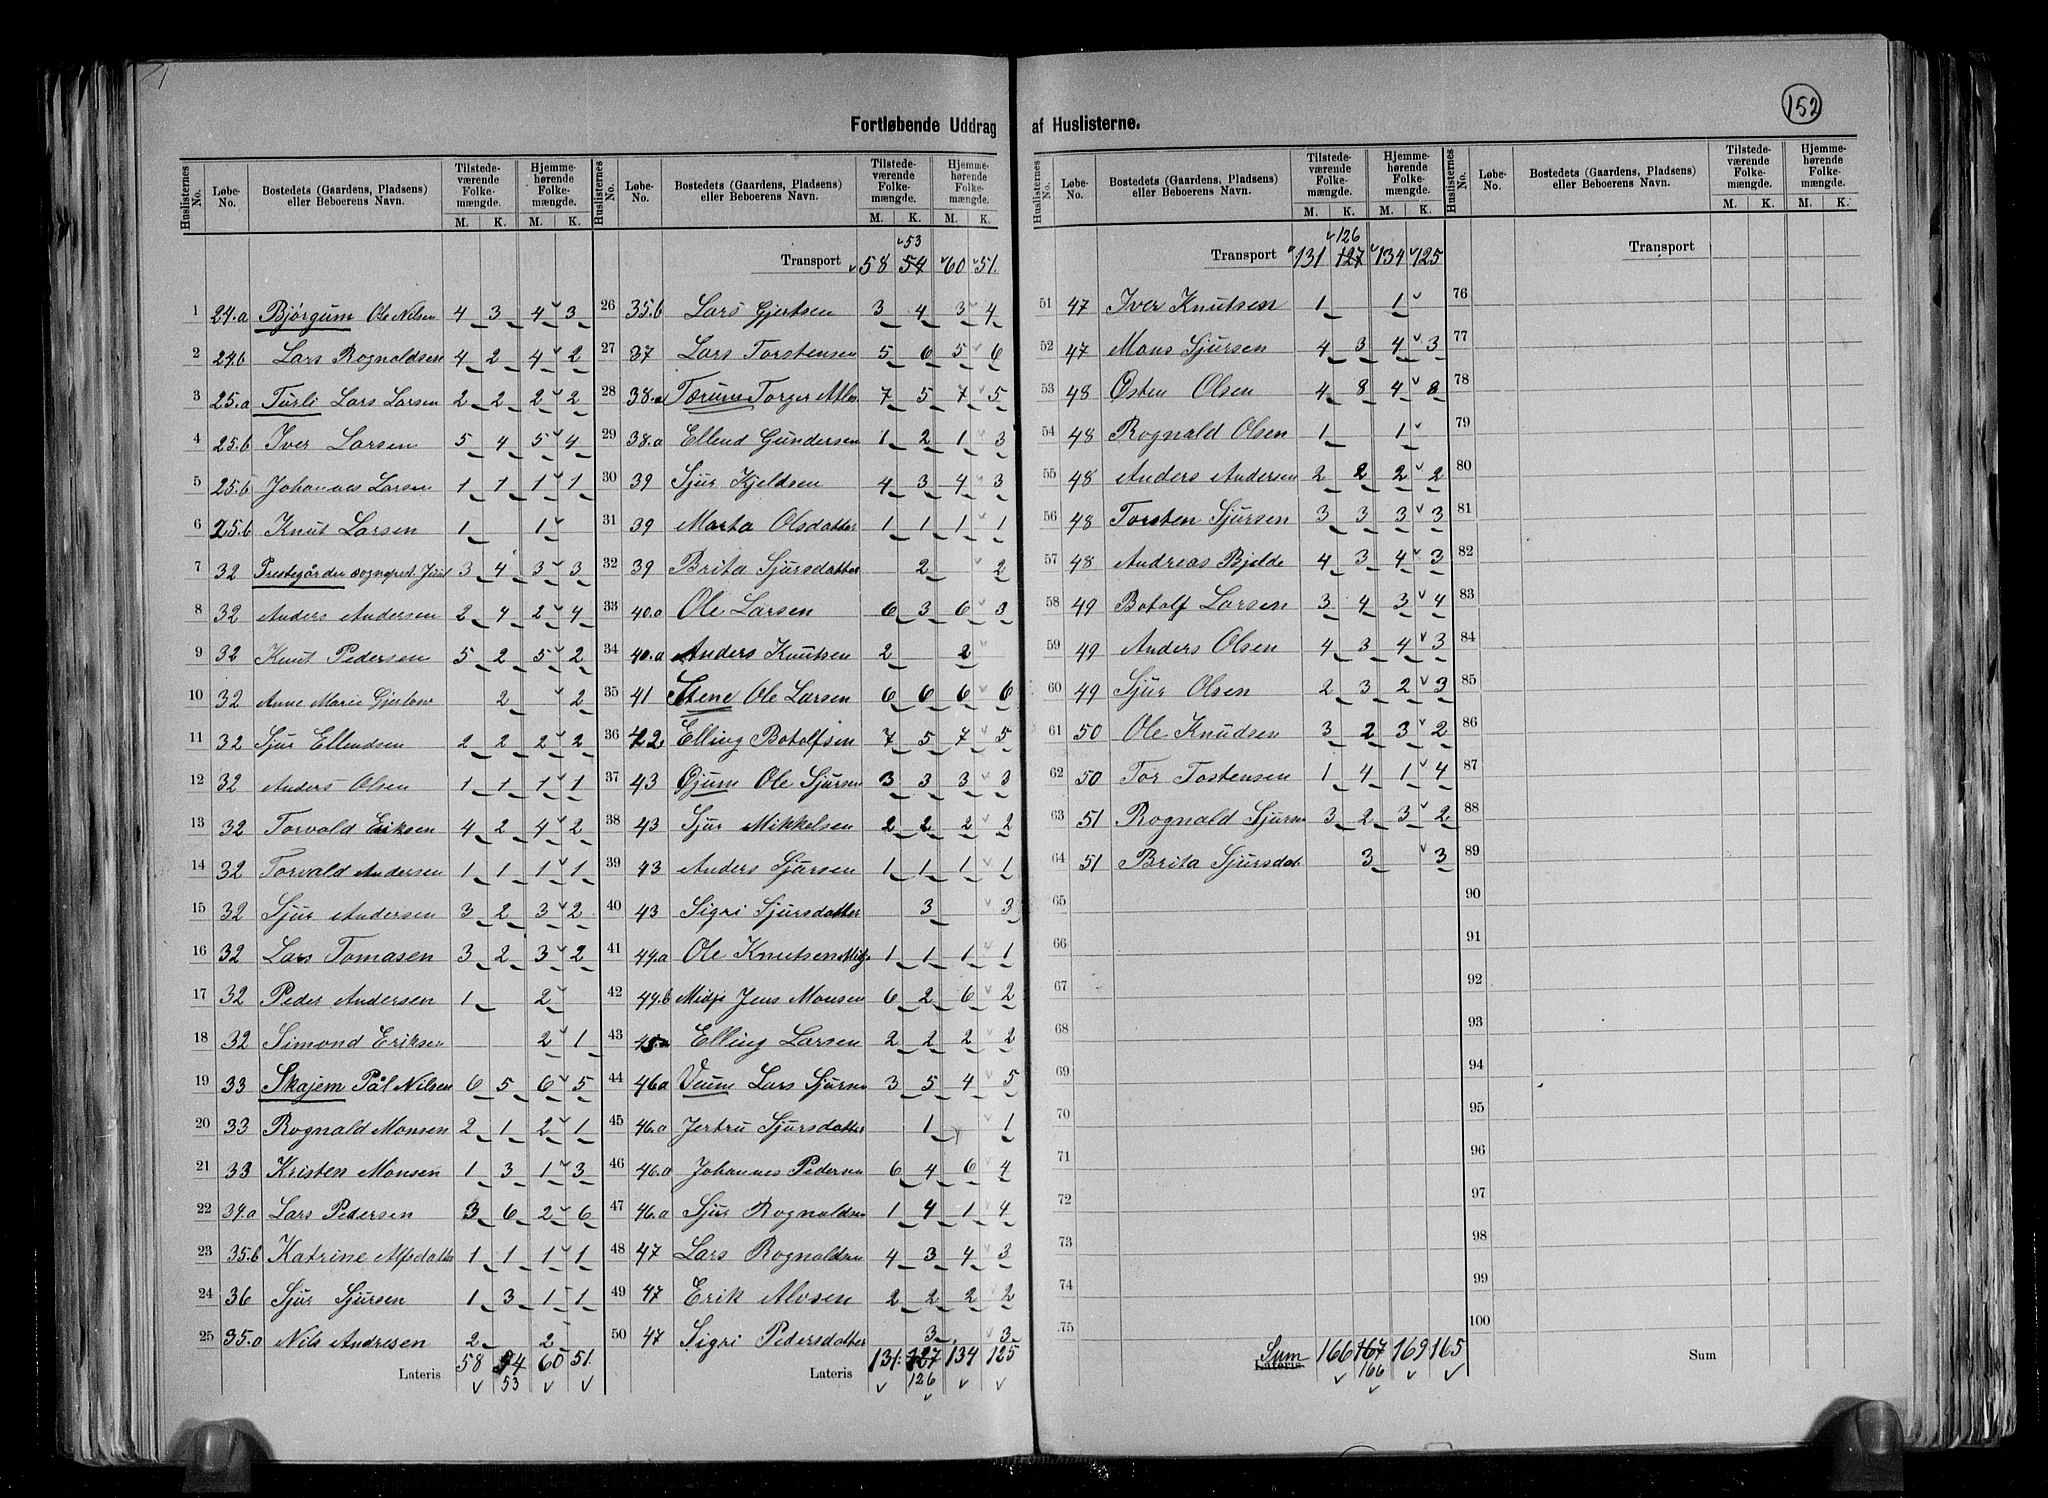 152
Fortløbende Uddrag af Huslisterne.
Huslisternes No. | Løbe-No. | Bostedets (Gaardens, Pladsens) eller Beboerens Navn. | Tilstedeværende Folkemængde. M. K. | Hjemmehørende Folkemængde. M. K.
1 24.a Bjørgum Ole Nilsen 4 3 4 3
2 24.b Lars Rognaldsen 4 2 4 2
3 25.a Turli Lars Larsen 2 2 2 2
4 25.b Iver Larsen 5 4 5 4
5 25.b Johannes Larsen 1 1 1 1
6 25.b Knut Larsen 1 1
7 32 Prestegården sognepr. 3 4 3 3
8 32 Anders Andersen 2 4 2 4
9 32 Knut Pedersen 5 2 5 2
10 32 Anne Marie 2 2
11 32 Sjur Ellendsen 2 2 2 2
12 32 Anders Olsen 1 1 1 1
13 32 Torvald Eriksen 4 2 4 2
14 32 Torvald Andersen 1 1 1 1
15 32 Sjur Andersen 3 2 3 2
16 32 Lars Tomasen 3 2 3 2
17 32 Peder Andersen 1 2
18 32 Simond Eriksen 2 1
19 33 Skajem Pål Nilsen 6 5 6 5
20 33 Rognald Monsen 2 1 2 1
21 33 Kristen Monsen 1 3 1 3
22 34.a Lars Pedersen 3 6 2 6
23 35.b Katrine Alfsdatter 1 1 1 1
24 36 Sjur Sjursen 1 3 1 1
25 35.a Nils Andresen 2 2
Lateris 58 54 60 51
53
Huslisternes No. | Løbe-No. | Bostedets (Gaardens, Pladsens) eller Beboerens Navn. | Tilstedeværende Folkemængde. M. K. | Hjemmehørende Folkemængde. M. K.
53
Transport 58 54 60 51.
26 35.b Lars Gjertsen 3 4 3 4
27 37 Lars Torstensen 5 6 5 6
28 38.a Tærum Torger 7 5 7 5
29 38.a Ellend Gundersen 1 2 1 3
30 39 Sjur Kjeldsen 4 3 4 3
31 39 Marta Olsdatter 1 1 1 1
32 39 Brita Sjursdatter 2 2
33 40.a Ole Larsen 6 3 6 3
34 40.a Anders Knutsen 2 2
35 41 Stene Ole Larsen 6 6 6 6
36 42 Elling Botolfsen 7 5 7 5
37 43 Gjum Ole Sjursen 3 3 3 3
38 43 Sjur Mikkelsen 2 2 2 2
39 43 Anders Sjursen 1 1 1 1
40 43 Sigri Sjursdatter 3 3
41 44.a Ole Knutsen 1 1 1 1
42 44.b Midji Jens Monsen 6 2 6 2
43 45.a Elling Larsen 2 2 2 2
44 46.a Veum Lars Sjursn 3 5 4 5
45 46.a Jertru Sjursdatter 1 1
46 46.a Johannes Pedersn 6 4 6 4
47 46.a Sjur Rognaldsn 1 4 1 4
48 47 Lars Rognaldsn 4 3 4 3
49 47 Erik Alvsen 2 2 2 2
50 47 Sigri Pedersdatter 3 3
Lateris 131. 127 134 125
126
Huslisternes No. | Løbe-No. | Bostedets (Gaardens, Pladsens) eller Beboerens Navn. | Tilstedeværende Folkemængde. M. K. | Hjemmehørende Folkemængde. M. K.
126
Transport 131 127 134 125
51 47 Iver Knutsen 1 1
52 47 Mons Sjursen 4 3 4 3
53 48 Østen Olsen 4 8 4 8
54 48 Rognald Olsen 1 1
55 48 Anders Andersen 2 2 2 2
56 48 Torsten Sjursen 3 3 3 3
57 48 Andreas Bjelde 4 3 4 3
58 49 Botolf Larsen 3 4 3 4
59 49 Anders Olsen 4 3 4 3
60 49 Sjur Olsen 2 3 2 3
61 50 Ole Knudsen 3 2 3 2
62 50 Tor Tostensen 1 4 1 4
63 51 Rognald Sjursn 3 2 3 2
64 51 Brita Sjursdat 3 3
65
66
67
68
69
70
71
72
73
74
75
Sum Lateris 166 167 169 165
166
Huslisternes No. | Løbe-No. | Bostedets (Gaardens, Pladsens) eller Beboerens Navn. | Tilstedeværende Folkemængde. M. K. | Hjemmehørende Folkemængde. M. K.
Transport
76
77
78
79
80
81
82
83
84
85
86
87
88
89
90
91
92
93
94
95
96
97
98
99
100
Sum